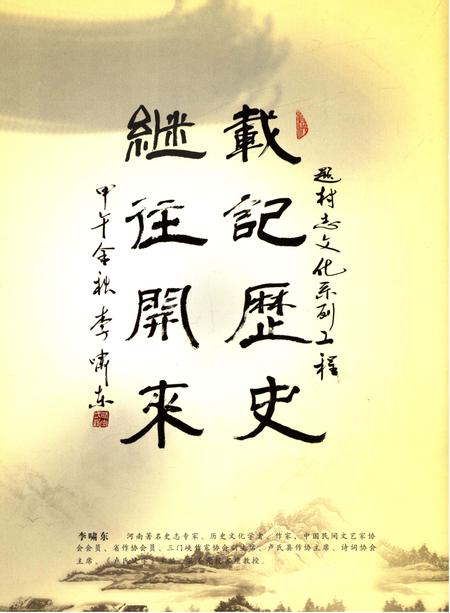 题村志文化系列工程
載記歷史
継往開來
甲午金秋李啸东
李啸东 河南著名史志专家、历史文化学者、作家，中国民间文艺家协
会会员、省作协会员、三门峡作家协会副主席、卢氏县作协主席、诗词协会
主席、《卢氏
教授。